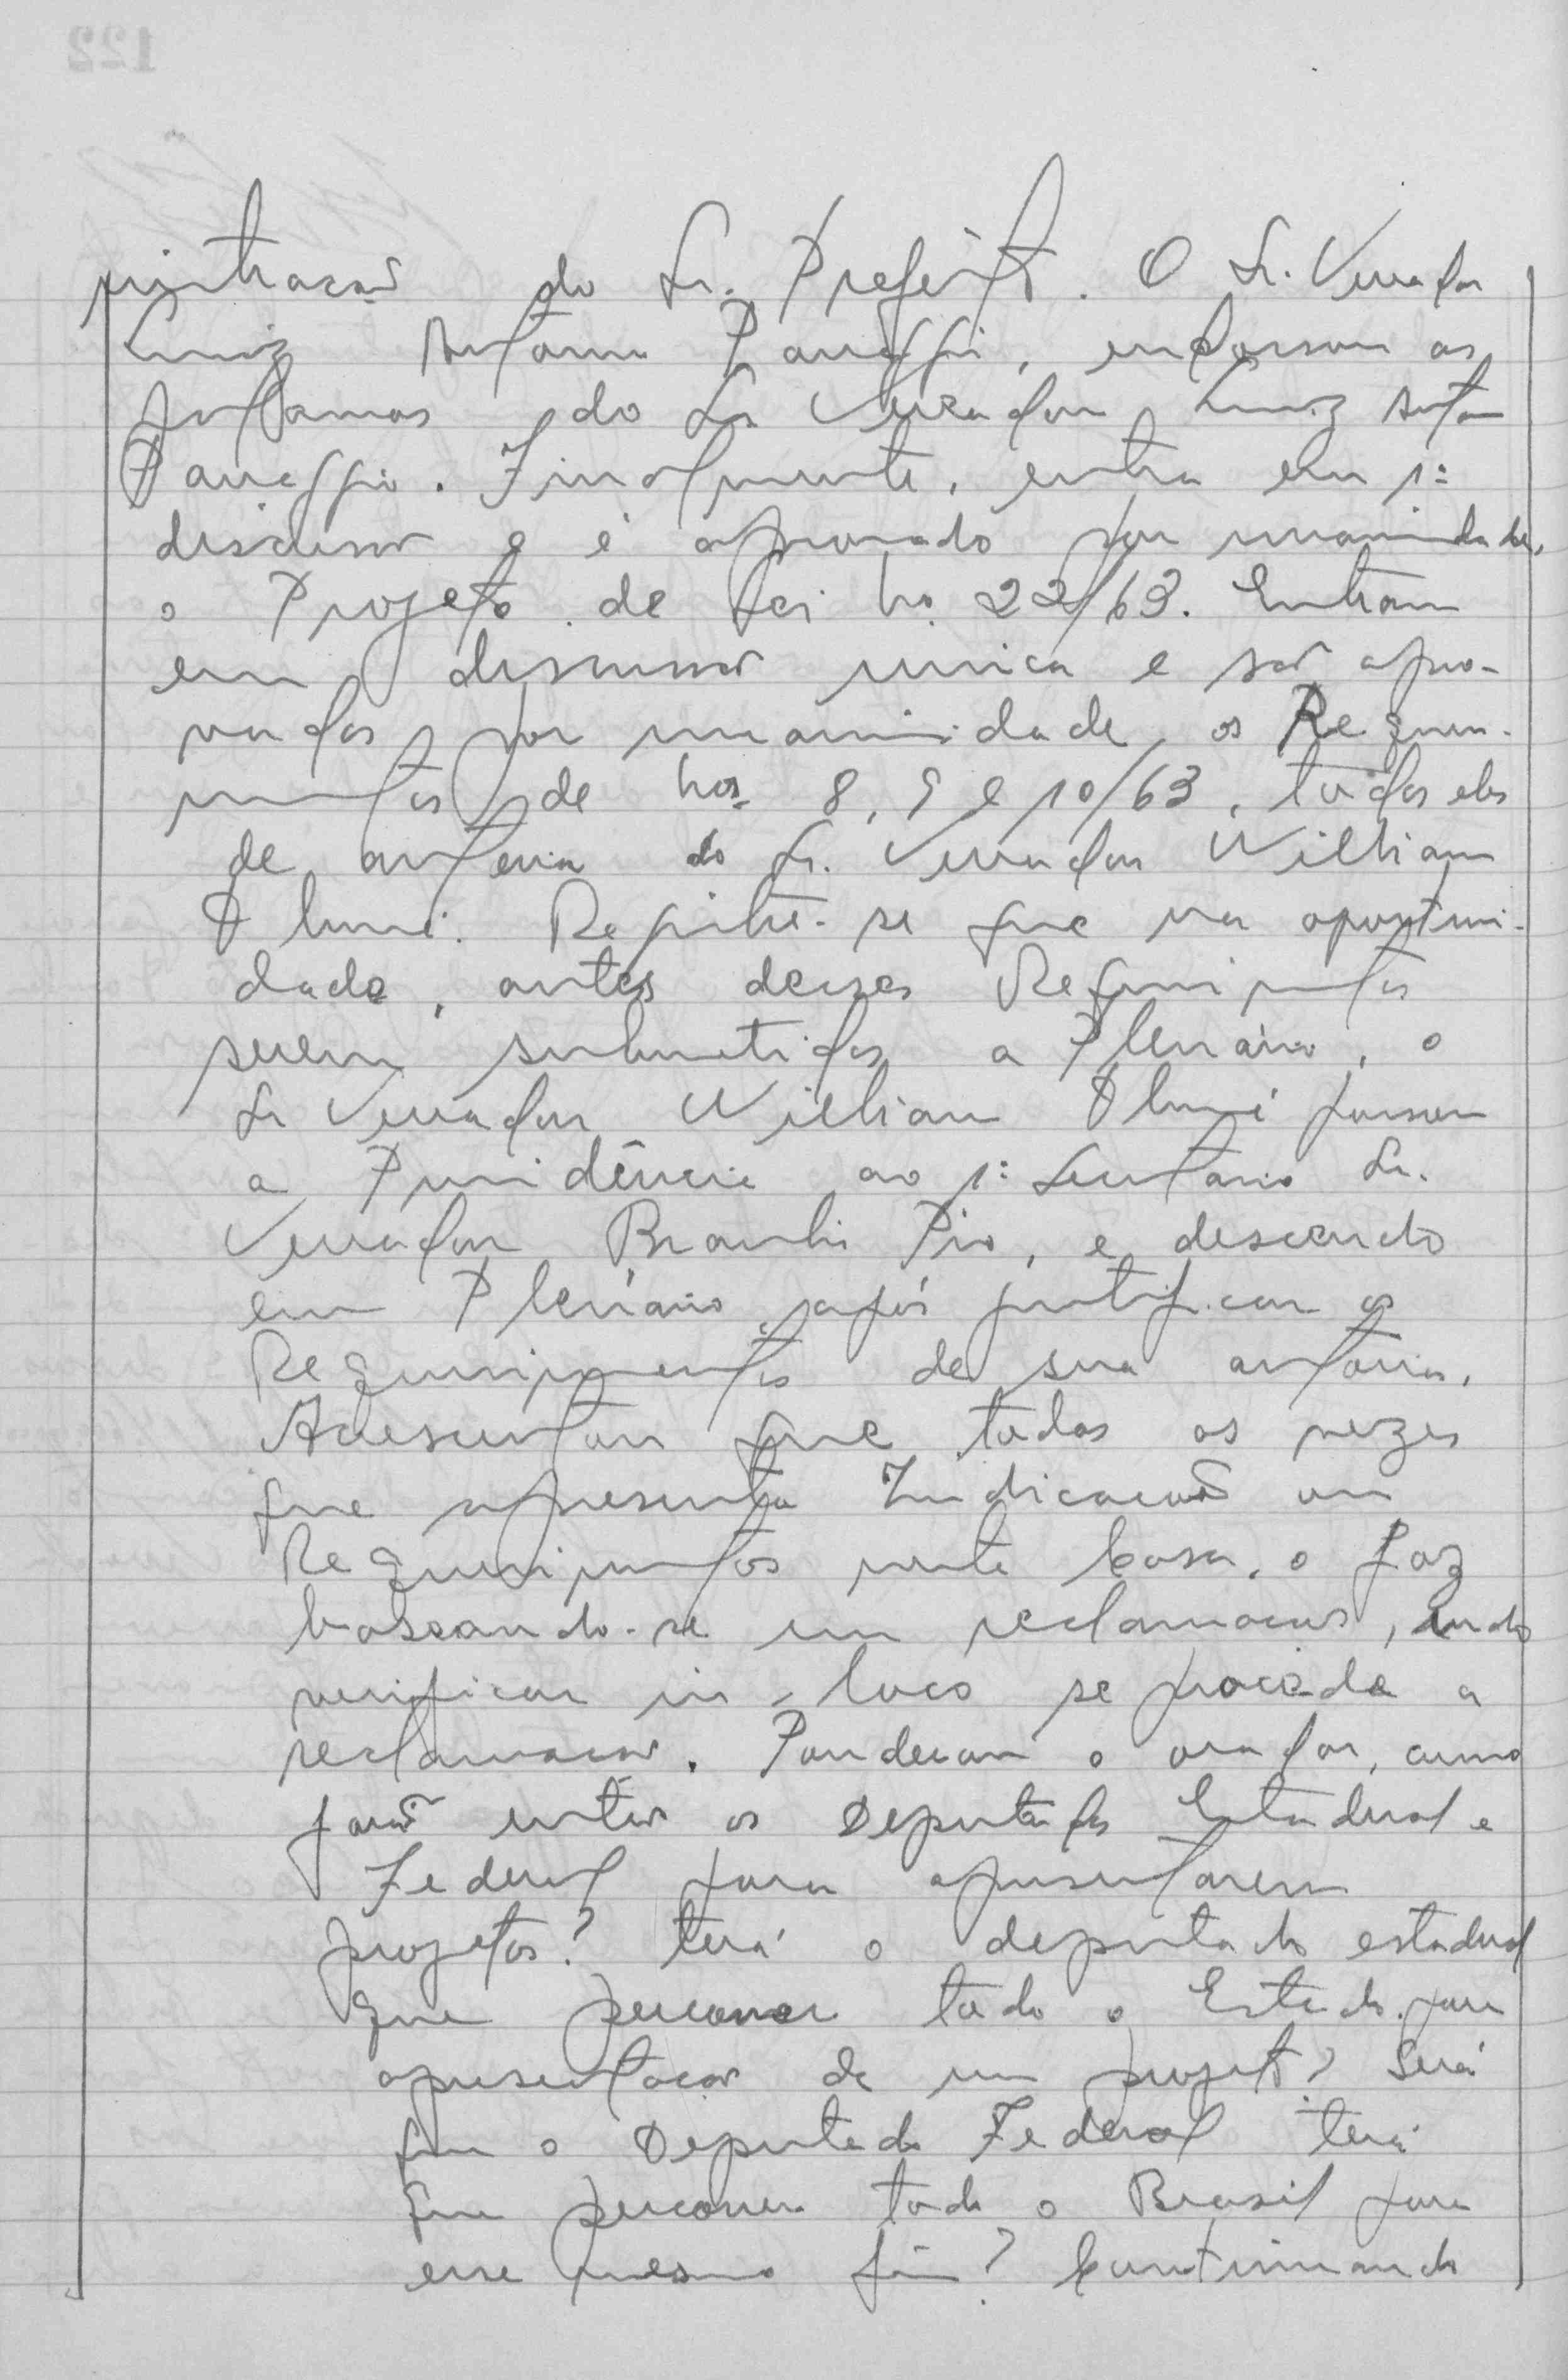 nistração do Sr. Prefeito. O Sr. Vereador
Luiz Antonio Panessi, endossou as
do Sr Vereador Luiz Anto
Panessi. Finalmente, entra em 1ª
discussão e é aprovado por unanimidade,
o Projeto de Lei no. 22/63. Entram
em discussão unica e são apro-
vados por unanimidade, os Requeri-
mentos de nos. 8, 9 e 10/63, todos eles
de autoria do Sr. Vereador William
Registre-se que na oportuni-
dade, antes desses Requerimentos
serem submetidos a Plenário, o
Sr Vereador William passou
a Presidência ao 1º Secretario Sr.
Vereador Pio, e descendo
em Plenário, após justificar os
Requerimentos de sua autoria.
Acrescentou que todas as vezes
que apresenta Indicação ou
Requerimentos nesta Casa, o faz
baseando-se em reclamações, indo
verificar in-loco se procede a
reclamação. Ponderou o orador, como
farão então os Deputados Estadual e
Federal para apresentarem
projetos? terá o deputado estadual
que percorrer todo o Estado para
apresentação de um projeto? Será
que o Deputado Federal terá
que percorrer todo o Brasil para
esse mesmo fim? Continuando